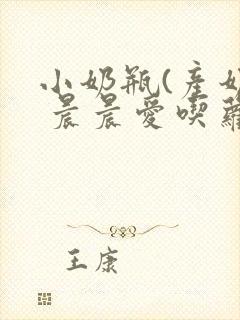 小奶瓶(産奶
晨晨愛喫蘿
王康